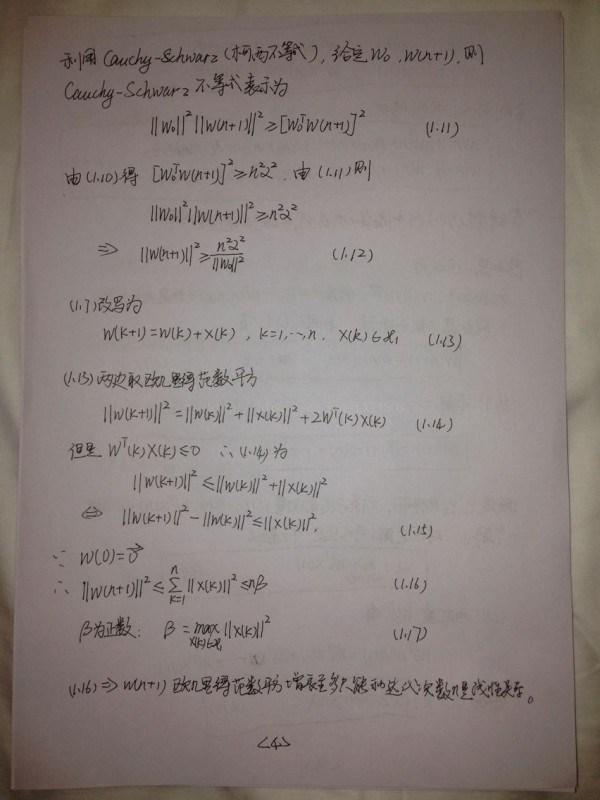 利用 Cauchy-Schwarz (柯西不等式), 给定 W₀, W(n+1), 则
Cauchy-Schwarz 不等式表示为
||W₀||²||W(n+1)||² ≥ [W₀ᵀW(n+1)]² (1.11)
由(1.10)得 [W₀ᵀW(n+1)]² ≥ n²α². 由(1.11)则
||W₀||²||W(n+1)||² ≥ n²α²
⇒ ||W(n+1)||² ≥ n²α²/||W₀||² (1.12)
(1.7)改写为
W(k+1) = W(k) + X(k), k=1,…,n, X(k)∈𝓗₁ (1.13)
(1.13)两边取欧几里得范数平方
||W(k+1)||² = ||W(k)||² + ||X(k)||² + 2Wᵀ(k)X(k) (1.14)
但是 Wᵀ(k)X(k) ≤ 0 ∴(1.14)为
||W(k+1)||² ≤ ||W(k)||² + ||X(k)||²
⇔ ||W(k+1)||² - ||W(k)||² ≤ ||X(k)||², (1.15)
∵ W(0) = 0⃗
∴ ||W(n+1)||² ≤ ∑ₖ₌₁ⁿ ||X(k)||² ≤ nβ (1.16)
β为正数: β = max X(k)∈𝓗₁ ||X(k)||² (1.17)
(1.16) ⇒ W(n+1) 欧几里得范数平方增长至多只能和迭代次数n是线性关系。
<4>